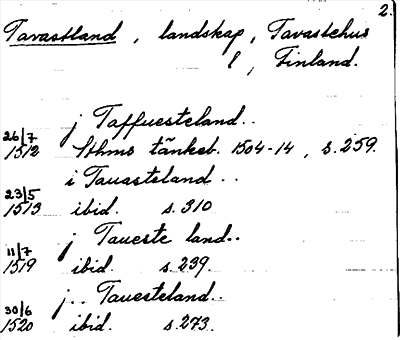 2.
Tavastland, landskap, Tavastehus
l, Finland.
j Taffuesteland..
26/7
1512 Sthms tänkeb. 1504-14, s.259.
i Tauasteland..
23/5
1513 ibid. s.310
j Taueste land..
11/7
1519 ibid. s.239.
j.. Tauesteland..
30/6
1520 ibid. s.273.